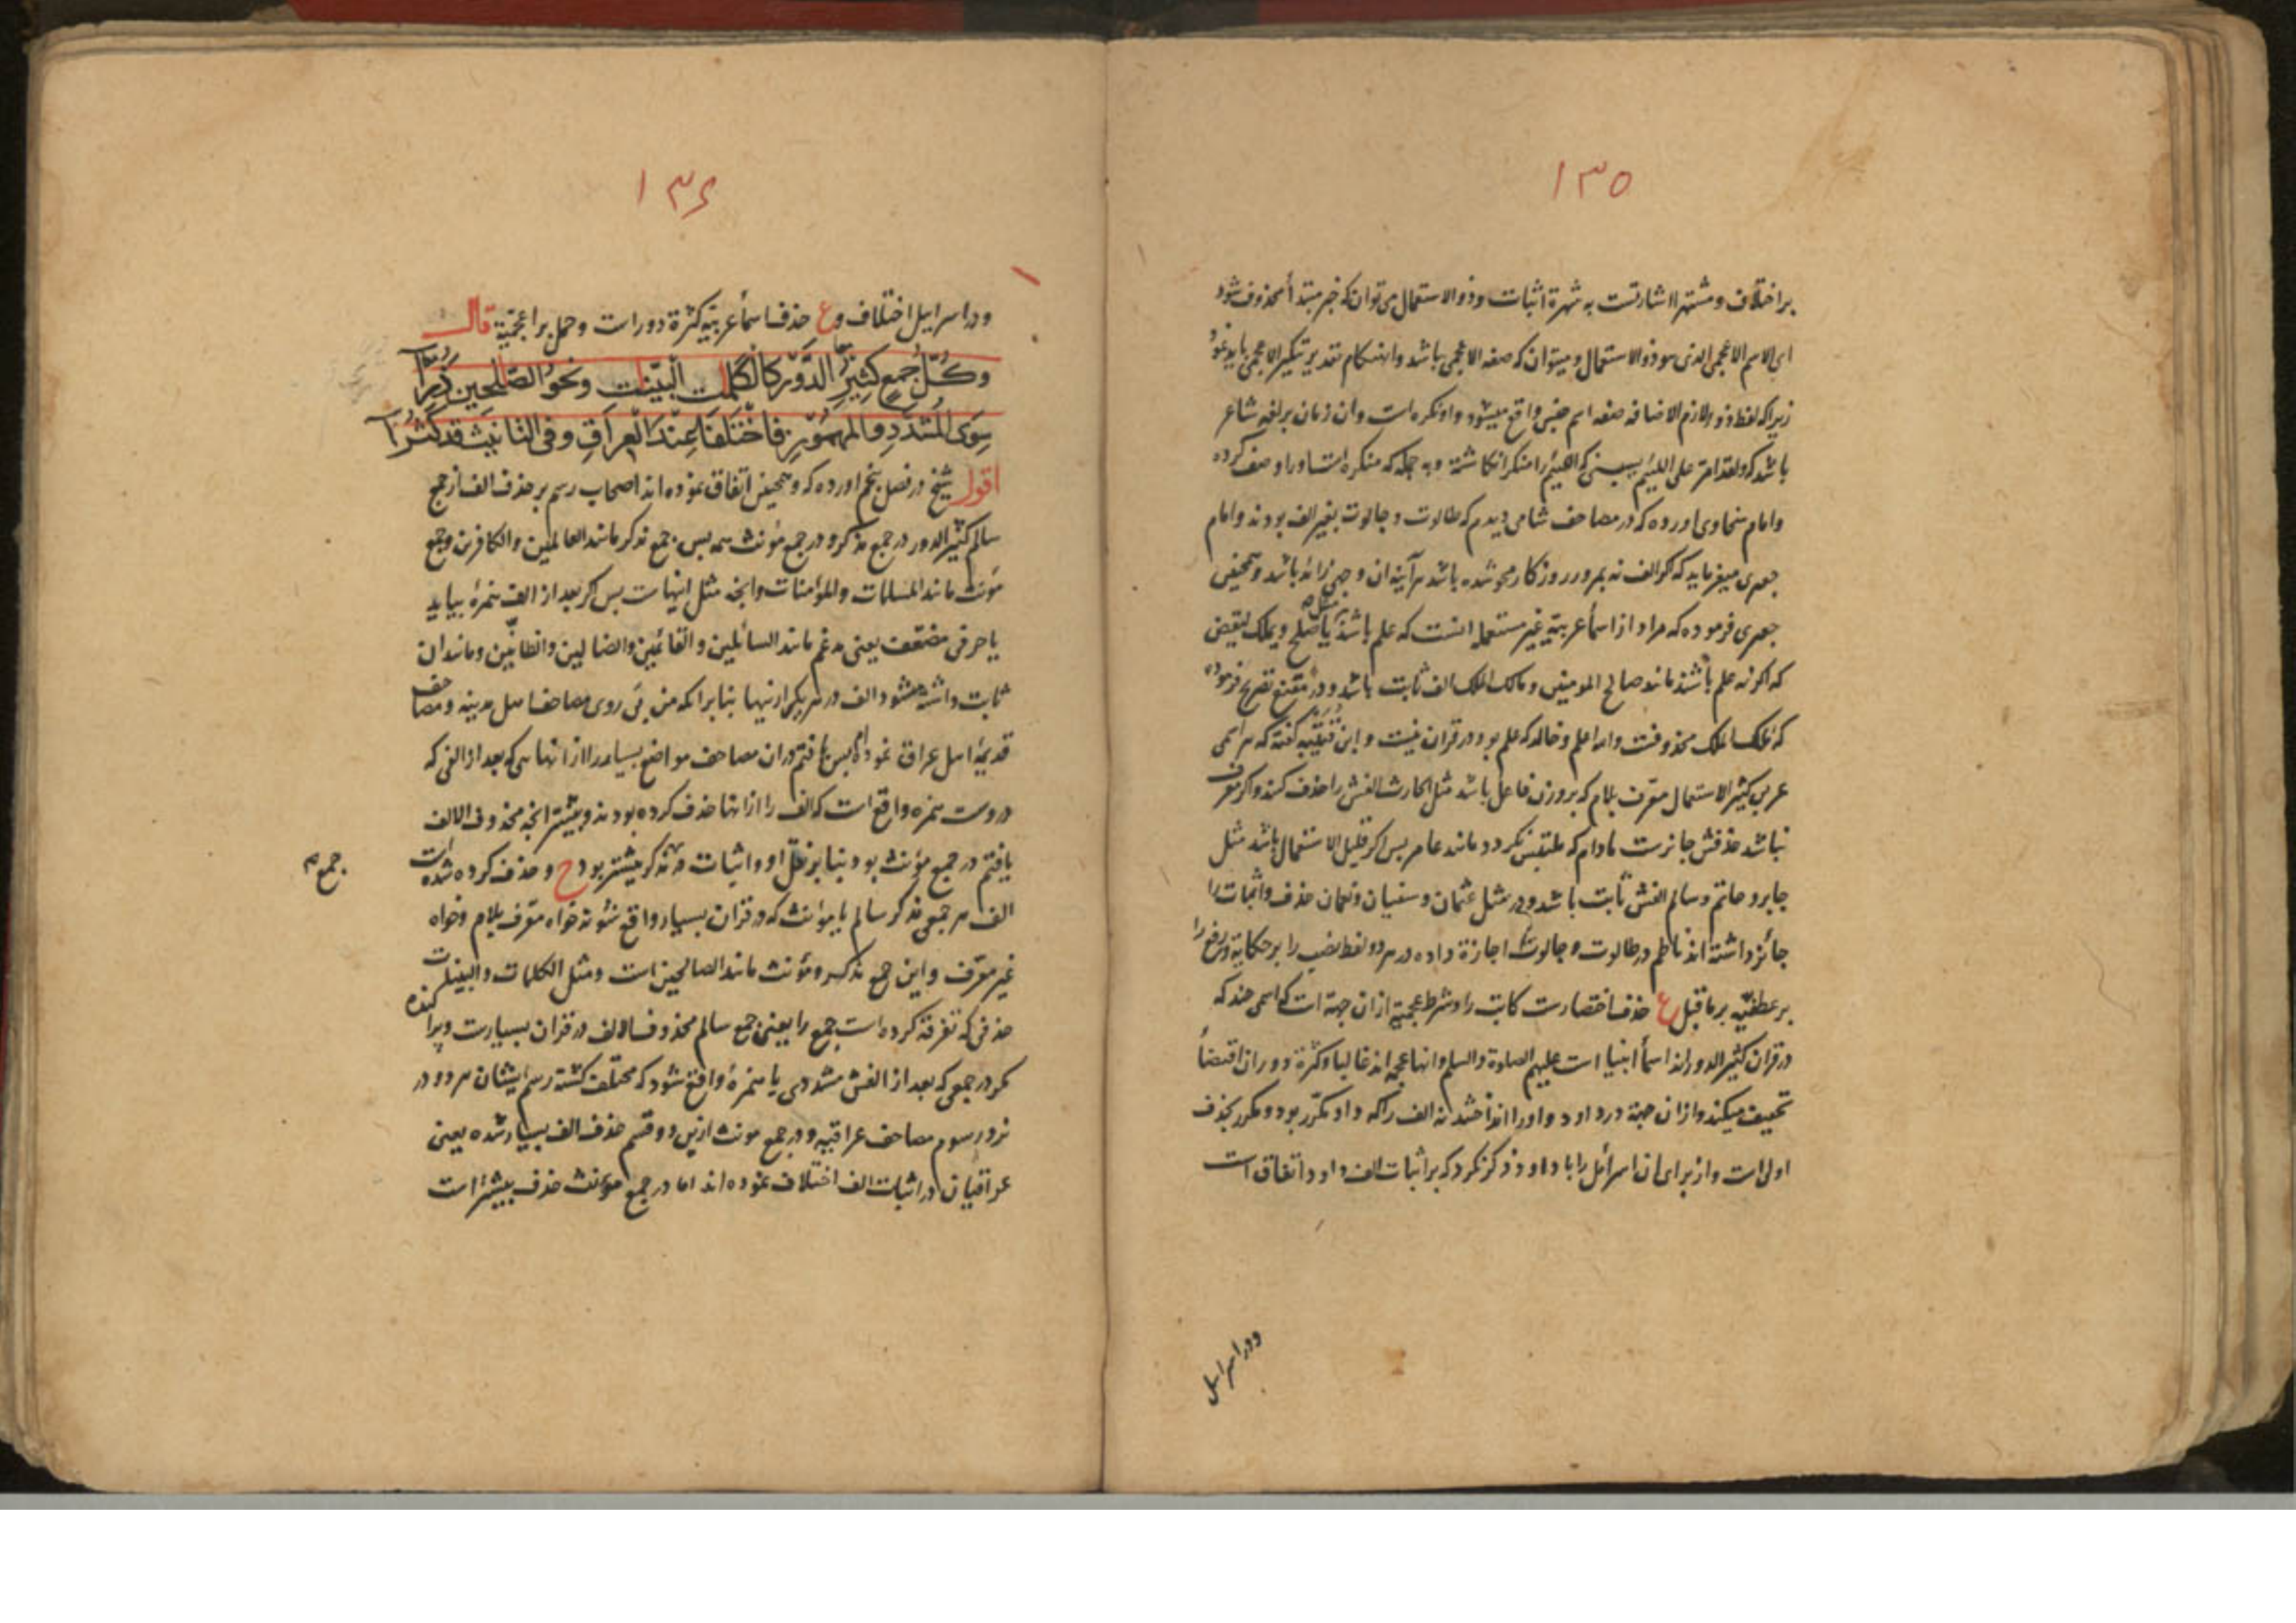 ۱۳۵
بر اختلاف و مشتهرا اشارتست به شهرة اثبات و ذو الاستعمال می توان که خبر مبتدأ محذوف شود
ای الاسم الاعجمی الذی هو ذو الاستعمال و میتوان که صفه الاعجمی باشد و تقدیر تنکیر الاعجمی باید نمود
زیرا که لفظ ذو و لازم الاضافه صفه اسم جنس واقع میشود و او نکره است وان زمان بر لغه شاعر
باشد که ولقد امر علی اللئیم یسبنی که اللئیم را منکر انکاشته و به جمله که منکره است او را وصف کرده
وامام سخاوی اورده که در مصاحف شامی دیدم که طالوت و جالوت بغیر الف بودند وامام
جعبری میفرماید که کر الف نه بمرور روزکار محو شده باشد هر آینه ان وجهی زائد باشد و همچنین
جعبری فرموده که مراد از اسماء عربیه غیر مستعمله انست که علم باشد مثل یا صلح و یملک لیقض
که اکر نه علم باشند مانند صالح المومنین و مالک الملک الف ثابت باشد و در مقنع تصریح فرموده
که ملک الملک محذوفست واما علم و خالد که علم بود در قران نیست و ابن قتیبه کفته که هر اسمی
عربی کثیر الاستعمال معرف بلام که بر وزن فاعل باشد مثل الحارث الفش را حذف کنند و اکر معرف
نباشد حذفش جائزست مادام که ملتبس نکردد مانند عامر پس اکر قلیل الاستعمال باشد مثل
جابر و حاتم و سالم الفش ثابت باشد و در مثل عثمان و سفیان و نعمان حذف و اثبات را
جائز داشته اند ناظم در طالوت و جالوت اجازة داده در هر دو لفظ نصب را بر حکایة و رفع را
بر عطفیه بر ماقبل ع حذف اختصارست کابت را و شرط عجمیة ازان جهة است که اسمی چند که
در قران کثیر الدورند اسمأ انبیا است علیهم الصلوة والسلم وانها عجمی اند غالبا و کثرة دوران اقتضاً
تخفیف میکند وازان جهة در داود واو را انداختند نه الف را که واو مکرر بود و مکرر بحذف
اولی است واز برای ان اسرائل را با داود ذکر نکرد که بر اثبات الف داود اتفاق است
ودر اسرایل
۱۳۶
ودر اسرایل اختلاف و ع حذف اسمأ عربیه کثرة دورات و حمل بر اعجمیة قال
وَكُلُّ جَمْعٍ كَثِيرِ الدَّوْرِ كَالْكَلِمٰتِ البَيِّنٰت ونَحْوُ الصّٰلِحين ذُرًا
سِوَى المُشَدَّدِ والمَهْمُوزِ فَاخْتَلَفَا عِنْدَ الْعِرَاقِ وفى التانيث قد كَثُرَا
اقول شیخ در فصل پنجم اورده که و همچنین اتفاق نموده اند اصحاب رسم بر حذف الف از جمع
سالم کثیر الدور در جمع مذکر و در جمع مؤنث همه پس جمع مذکر مانند العالمین والکافرین و جمع
مؤنث مانند المسلمات والمؤمنات وانچه مثل اینهاست پس کر بعد از الف همزه بیاید
یا حرفی مضعف یعنی مدغم مانند السائلین والقائمین والضالین والظانین ومانند ان
ثابت داشته میشود الف در هر یکی ازینها بنابر انکه من پی روی مصاحف اهل مدینه و مصاحف
قدیمهٔ اهل عراق نموده ام پس یافتم در ان مصاحف مواضع بسیار را از انهایی که بعد از الفی که
دروست همزه واقع است که الف را از انها حذف کرده بودند و بیشتر انچه محذوف الالف
یافتم در جمع مؤنث بود بنابر ثقل او و اثبات در مذکر بیشتر بود ح و حذف کرده شده است
الف هر جمع مذکر سالم یا مؤنث که در قران بسیار واقع شود خواه معرف بلام و خواه
غیر معرف و این جمع مذکر و مؤنث مانند الصالحین است و مثل الکلمات والبینات
حذفی که تفرقه کرده است جمع را یعنی جمع سالم محذوف الالف در قران بسیارست و پراکنده
مکر در جمعی که بعد از الفش مشددی یا همزهٔ واقع شود که مختلف کشته رسم ایشان هر دو در
نزد رسوم مصاحف عراقیه و در جمع مونث ازین دو قسم حذف الف بسیار شده یعنی
عراقیان در اثبات الف اختلاف نموده اند اما در جمع مؤنث حذف بیشتر است
جمع م